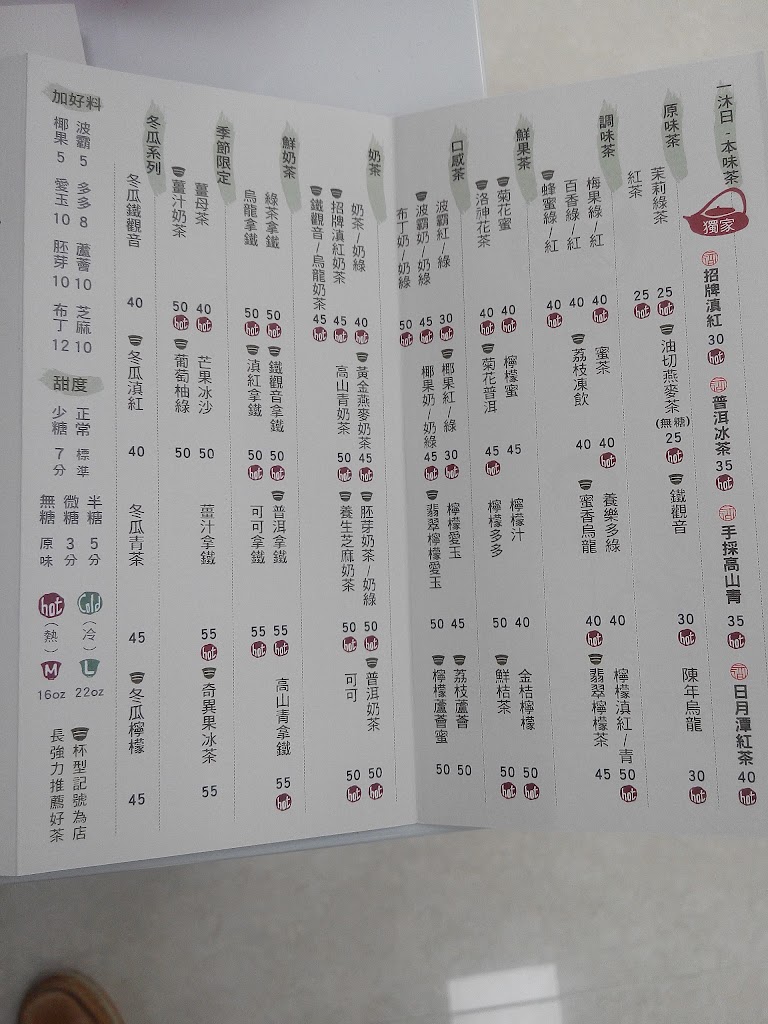 一沐日·本味茶
獨家
招牌滇紅 30 hot
普洱冰茶 35
手採高山青 35 hot
日月潭紅茶 40 hot
原味茶
茉莉綠茶 25 hot
紅茶 25 hot
油切燕麥茶(無糖) 25 hot
鐵觀音 30 hot
陳年烏龍 30 hot
調味茶
梅果綠/紅 40 hot
百香綠/紅 40
蜂蜜綠/紅 40 hot
蜜茶 40 hot
荔枝凍飲 40
養樂多綠 40
蜜香烏龍 40 hot
檸檬滇紅/青 50 hot
翡翠檸檬茶 45
鮮果茶
菊花蜜 40 hot
洛神花茶 40 hot
檸檬蜜 45
菊花普洱 45 hot
檸檬汁 40
檸檬多多 50
金桔檸檬 50 hot
鮮桔茶 50 hot
口感茶
波霸紅/綠 30
波霸奶/奶綠 45 hot
布丁奶/奶綠 50 hot
椰果紅/綠 30
椰果奶/奶綠 45 hot
檸檬愛玉 45
翡翠檸檬愛玉 50
荔枝蘆薈 50
檸檬蘆薈蜜 50
奶茶
奶茶/奶綠 40 hot
招牌滇紅奶茶 45 hot
鐵觀音/烏龍奶茶 45 hot
黃金燕麥奶茶 45 hot
高山青奶茶 50 hot
胚芽奶茶/奶綠 50 hot
養生芝麻奶茶 50 hot
普洱奶茶 50 hot
可可 50 hot
鮮奶茶
綠茶拿鐵 50 hot
烏龍拿鐵 50 hot
鐵觀音拿鐵 50 hot
滇紅拿鐵 50 hot
普洱拿鐵 55 hot
可可拿鐵 55 hot
高山青拿鐵 55 hot
季節限定
薑母茶 40 hot
薑汁奶茶 50 hot
芒果冰沙 50
葡萄柚綠 50
薑汁拿鐵 55 hot
奇異果冰茶 55
冬瓜系列
冬瓜鐵觀音 40
冬瓜滇紅 40
冬瓜青茶 45
冬瓜檸檬 45
加好料
波霸 5 多多 8 蘆薈 10 芝麻 10
椰果 5 愛玉 10 胚芽 10 布丁 12
甜度
正常 標準
少糖 7分
半糖 5分
微糖 3分
無糖 原味
Cold (冷) L 22oz
hot (熱) M 16oz
杯型記號為店
長強力推薦好茶